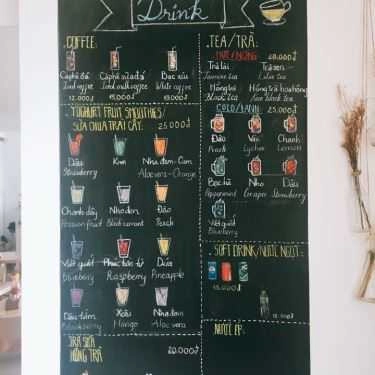 Drink
COFFEE
Cà phê đá Cà phê sữa đá Bạc xỉu
Iced coffee Iced milk coffee White coffee
12.000đ 15.000đ 18.000đ
YOGHURT FRUIT SMOOTHIES/
SỮA CHUA TRÁI CÂY: 25.000đ
Dâu Kiwi Nha đam-Cam
Strawberry Aloe vera-Orange
Chanh dây Nho đen Đào
Passion fruit Blackcurrant Peach
Việt quất Phúc bồn tử Dứa
Blueberry Raspberry Pineapple
Dâu tằm Xoài Nha đam
Mango Aloe vera
TRÀ SỮA
HỒNG TRÀ 20.000đ
TEA/TRÀ:
HOT/NÓNG 20.000đ
Trà lài Trà sen
Jasmine tea Lotus tea
Hồng trà Hồng trà hoa hồng
Black tea Rose black tea
COLD/LẠNH 25.000đ
Đào Vải Chanh
Peach Lychee Lemon
Bạc hà Nho Dâu
Peppermint Grape Strawberry
Việt quất
Blueberry
SOFT DRINK/NƯỚC NGỌT:
15.000đ
NƯỚC ÉP